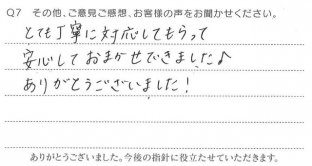 Q7 その他、ご意見ご感想、お客様の声をお聞かせください。
とても丁寧に対応してもらって
安心しておまかせできました♪
ありがとうございました!
ありがとうございました。今後の指針に役立たせていただきます。